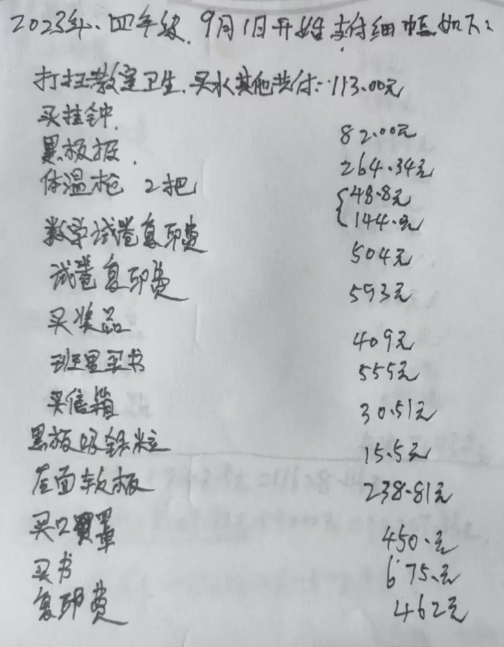 2023年、四年级.9月1日开始支付细帐如下:
打扫教室卫生.买水其他共付:113.00元
买挂钟. 82.00元
黑板报. 264.34元
体温枪 2把 {48.8元
144.元
数学试卷复印费 504元
试卷复印费 593元
买奖品 409元
班里买书 555元
买信箱 30.51元
黑板吸铁粒 15.5元
后面软板 238.81元
买口罩 450.元
买书 675.元
复印费 462元